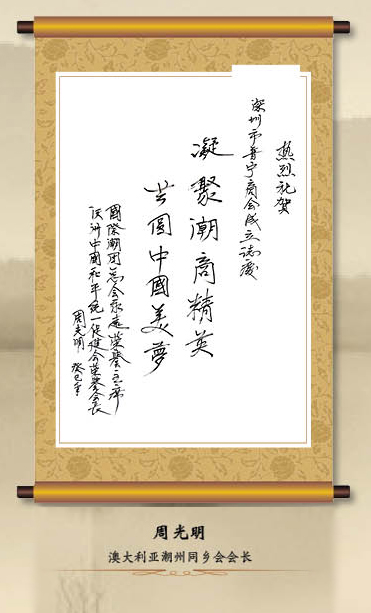 热烈祝贺
深圳市普宁商会成立誌庆
凝聚潮商精英
共圆中國美夢
國際潮团总会永远荣誉主席
澳洲中國和平统一促進会荣誉会長
周光明 癸巳年
周光明
澳大利亚潮州同乡会会长